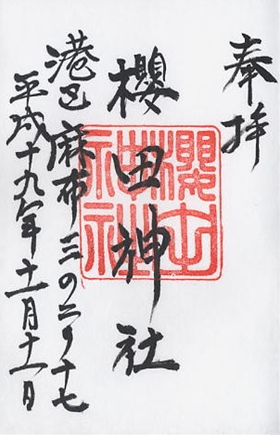 奉拝
櫻田神社
櫻田神社
港区麻布三の二ノ十七
平成十九年十一月十一日